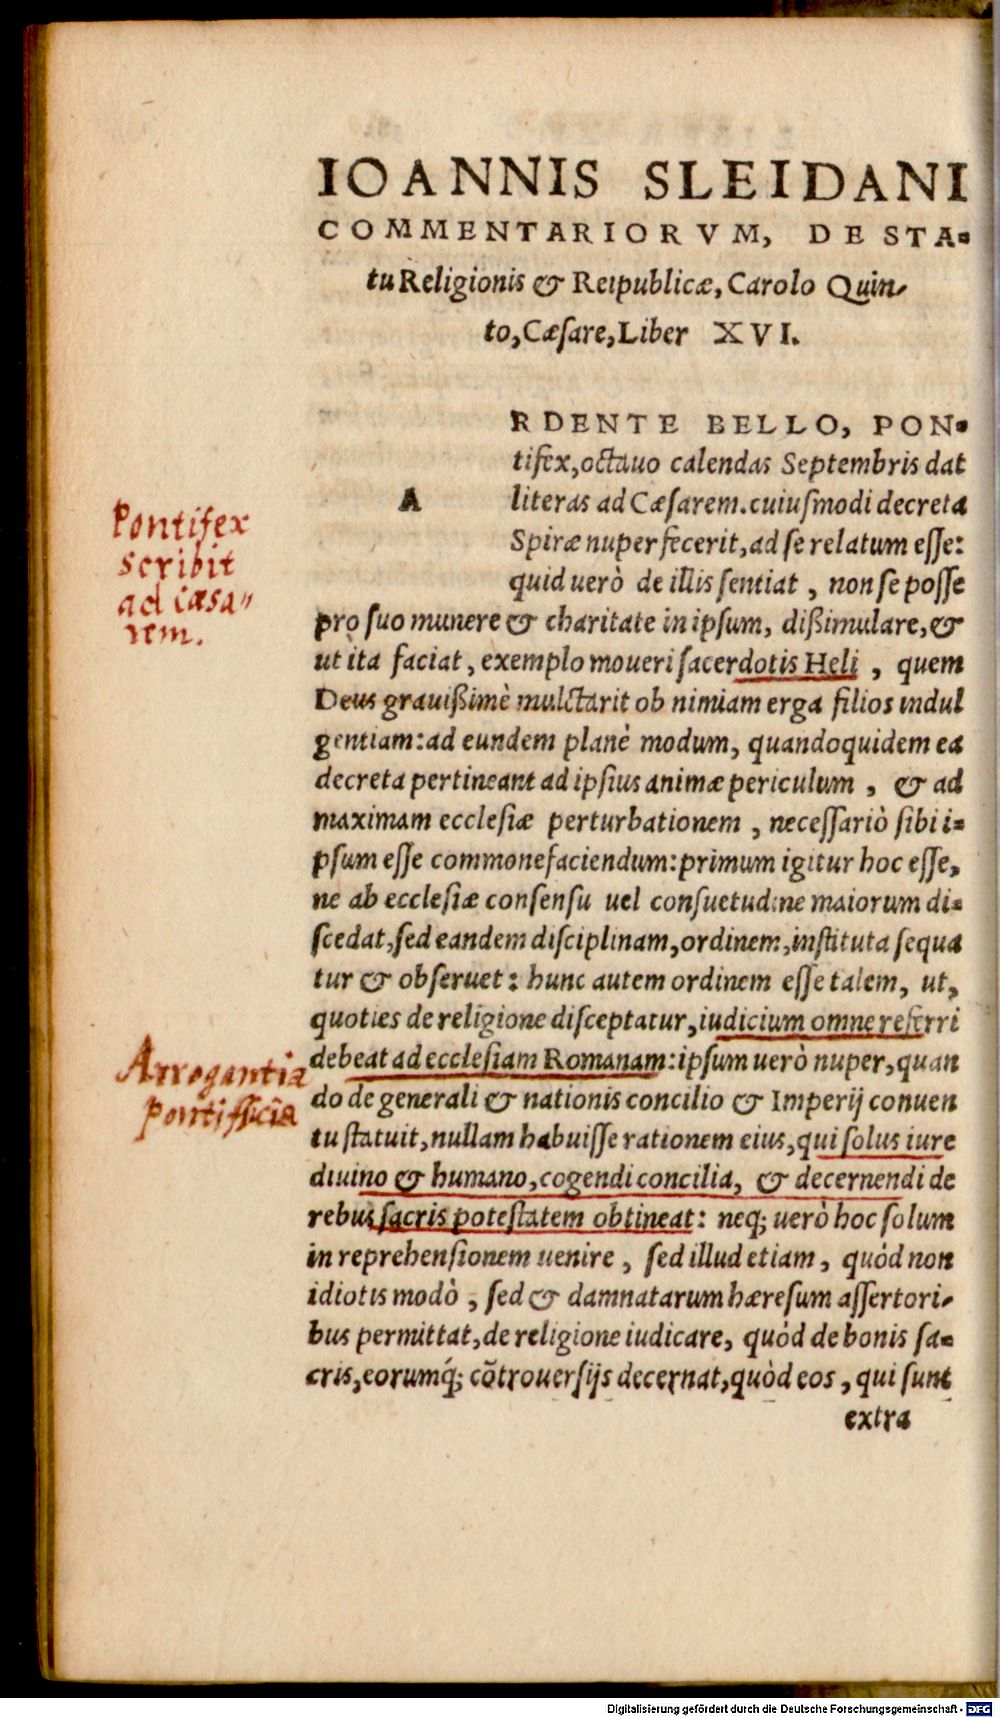 IOANNIS SLEIDANI
COMMENTARIORVM, DE STA-
tu Religionis & Reipublicæ, Carolo Quin-
to, Cæsare, Liber XVI.
A
RDENTE BELLO, PON-
tifex, octauo calendas Septembris dat
literas ad Cæsarem. cuiusmodi decreta
Spiræ nuper fecerit, ad se relatum esse:
quid uerò de illis sentiat, non se posse
pro suo munere & charitate in ipsum, dißimulare, &
ut ita faciat, exemplo moueri sacerdotis Heli, quem
Deus grauißimè mulctarit ob nimiam erga filios indul
gentiam: ad eundem planè modum, quandoquidem ea
decreta pertineant ad ipsius animæ periculum, & ad
maximam ecclesiæ perturbationem, necessariò sibi i-
psum esse commonefaciendum: primum igitur hoc esse,
ne ab ecclesiæ consensu uel consuetudine maiorum di-
scedat, sed eandem disciplinam, ordinem, instituta sequa
tur & obseruet: hunc autem ordinem esse talem, ut,
quoties de religione disceptatur, iudicium omne referri
debeat ad ecclesiam Romanam: ipsum uerò nuper, quan
do de generali & nationis concilio & Imperij conuen
tu statuit, nullam habuisse rationem eius, qui solus iure
diuino & humano, cogendi concilia, & decernendi de
rebus sacris potestatem obtineat: neq; uerò hoc solum
in reprehensionem uenire, sed illud etiam, quòd non
idiotis modò, sed & damnatarum hæresum assertori-
bus permittat, de religione iudicare, quòd de bonis sa-
cris, eorumq́; cõtrouersijs decernat, quòd eos, qui sunt
extra
Pontifex
scribit
ad Cæsa"
rem.
Arrogantia
Pontifficia
Digitalisierung gefördert durch die Deutsche Forschungsgemeinschaft - DFG